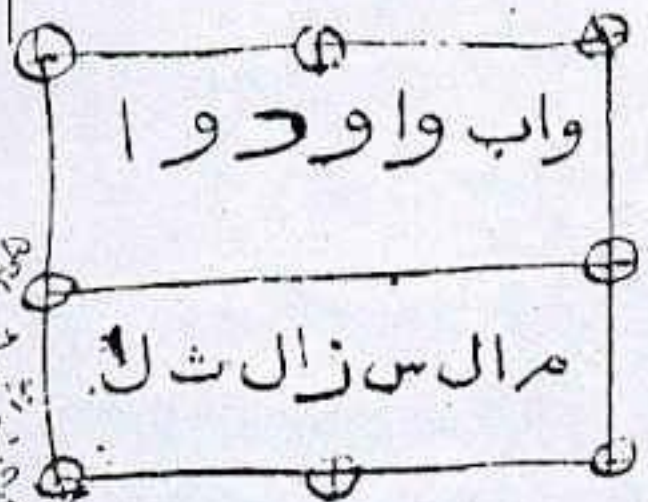 واب واو دو ا
م ال س ز ال ث ل ا